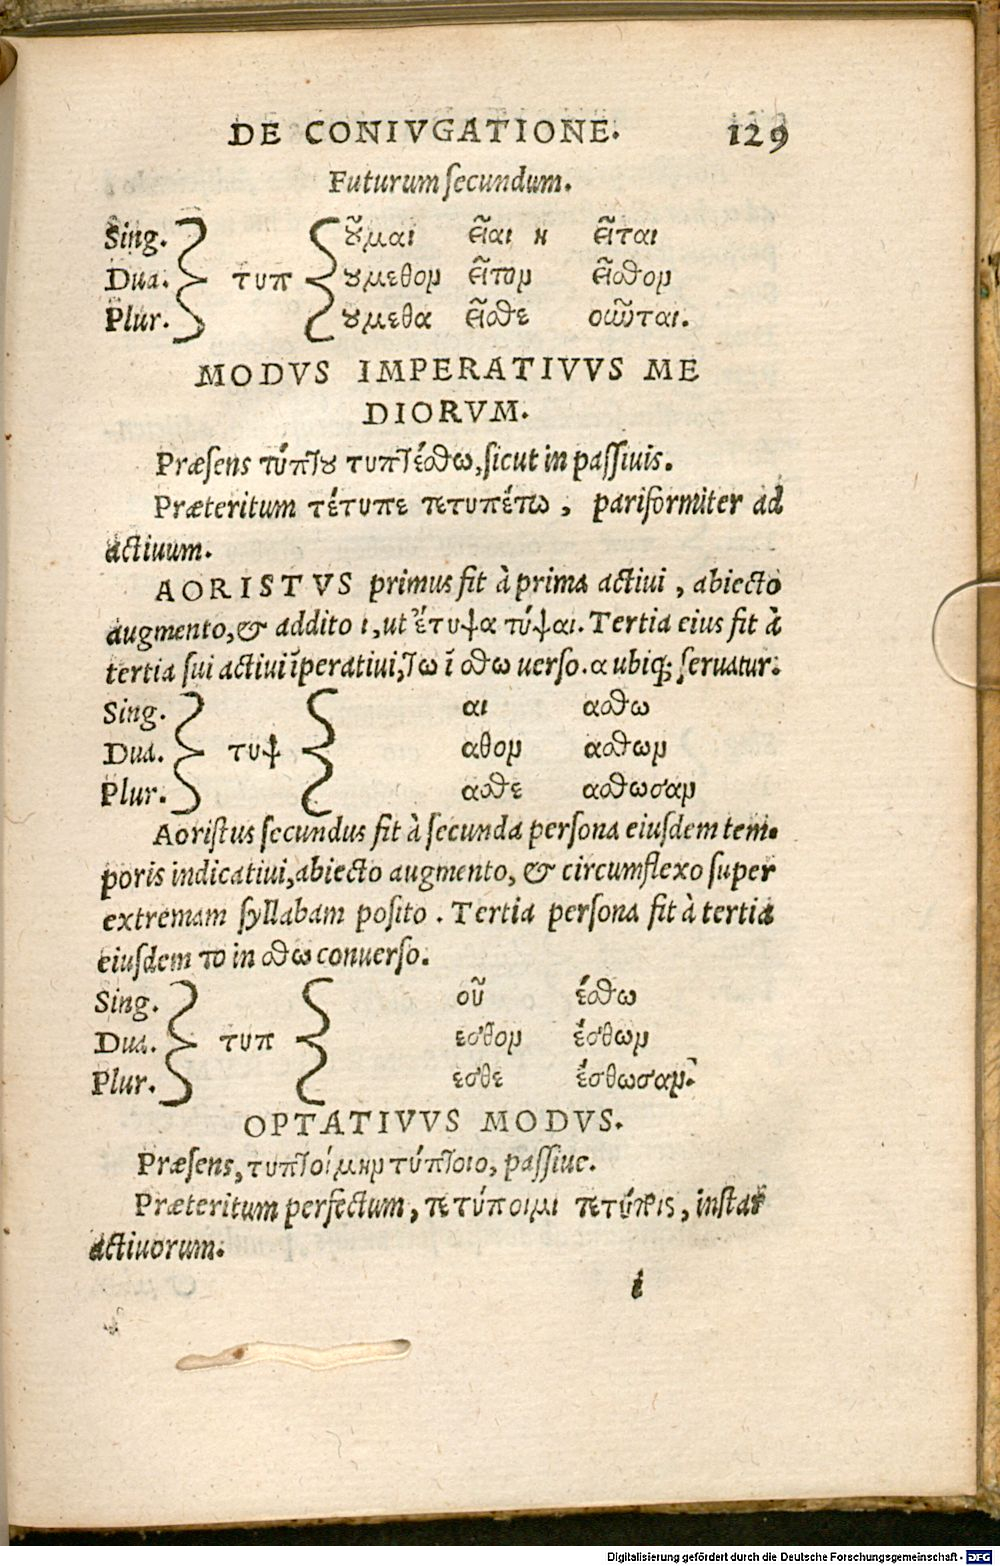 DE CONIVGATIONE. 129
Futurum secundum.
Sing. οῦμαι εῖαι η εῖται
Dua. τυπ ουμεθον εῖσθον εῖσθον
Plur. ουμεθα εῖσθε οιῶνται.
MODVS IMPERATIVVS ME
DIORVM.
Præsens τύπτου τυπτέσθω, sicut in passiuis.
Præteritum τέτυπε τετυπέτω, pariformiter ad
actiuum.
AORISTVS primus fit à prima actiui, abiecto
augmento, & addito ι, ut ἔτυψα τύψαι. Tertia eius fit à
tertia sui actiui ĩperatiui, τω ĩ σθω uerso. α ubiq; seruatur.
Sing. αι ασθω
Dua. τυψ αθον ασθων
Plur. ασθε ασθωσαν
Aoristus secundus fit à secunda persona eiusdem tem-
poris indicatiui, abiecto augmento, & circumflexo super
extremam syllabam posito. Tertia persona fit à tertia
eiusdem το in σθω conuerso.
Sing. οῦ έσθω
Dua. τυπ εσθον έσθων
Plur. εσθε έσθωσαν.
OPTATIVVS MODVS.
Præsens, τυπτοίμην τύπτοιο, passiue.
Præteritum perfectum, τετύποιμι τετύποις, instar
actiuorum.
i
Digitalisierung gefördert durch die Deutsche Forschungsgemeinschaft - DFG